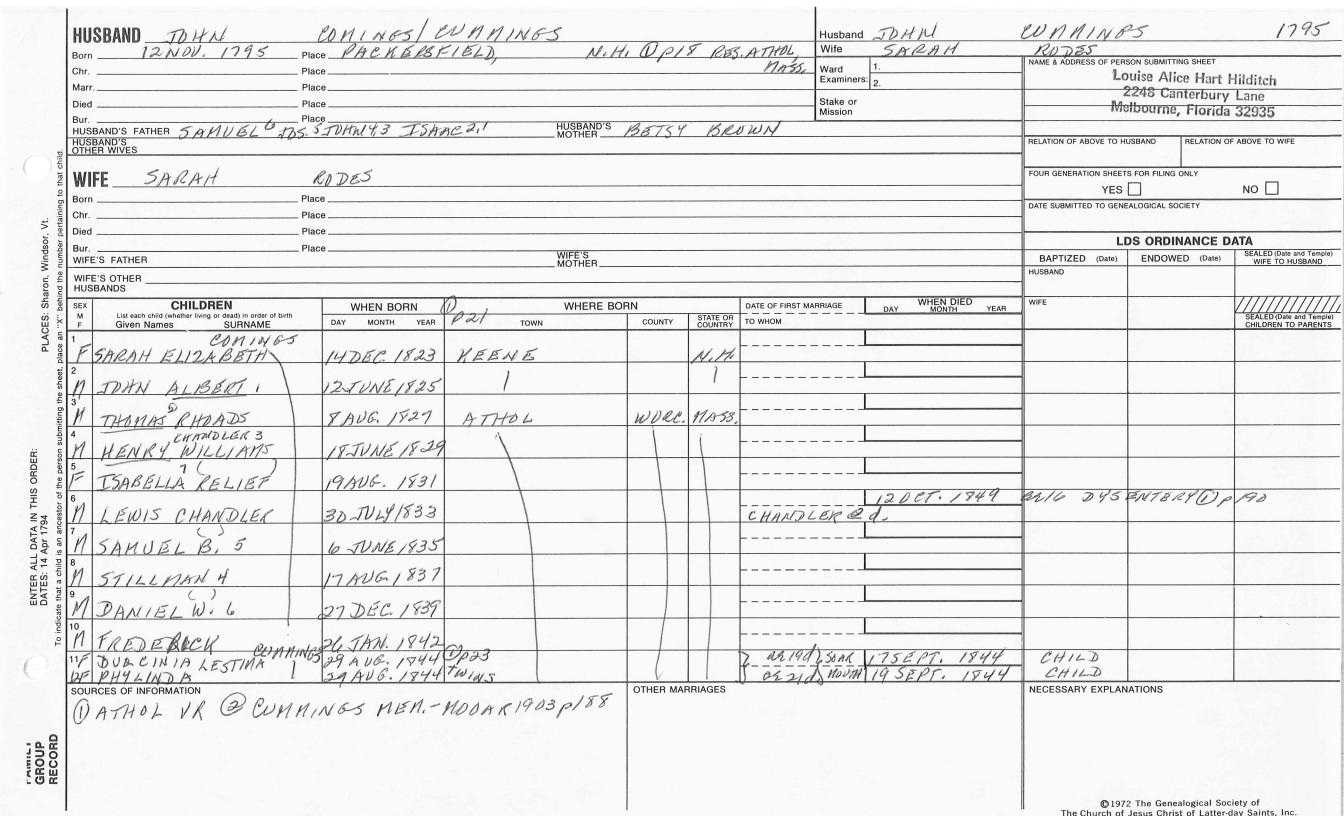 HUSBAND JOHN COMINGS/CUMMINGS
Born 12 NOV. 1795 Place PACKERSFIELD, N.H. ① p18 RES. ATHOL MASS.
Chr. Place
Marr. Place
Died Place
Bur. Place
HUSBAND'S FATHER SAMUEL 6 JOS. 5 JOHN 43 ISAAC 2,1 HUSBAND'S MOTHER BETSY BROWN
HUSBAND'S OTHER WIVES
Husband JOHN CUMMINGS 1795
Wife SARAH RODES
Ward Examiners: 1.
2.
Stake or Mission
NAME & ADDRESS OF PERSON SUBMITTING SHEET
Louise Alice Hart Hilditch
2248 Canterbury Lane
Melbourne, Florida 32935
RELATION OF ABOVE TO HUSBAND RELATION OF ABOVE TO WIFE
FOUR GENERATION SHEETS FOR FILING ONLY
YES NO
DATE SUBMITTED TO GENEALOGICAL SOCIETY
WIFE SARAH RODES
Born Place
Chr. Place
Died Place
Bur. Place
WIFE'S FATHER WIFE'S MOTHER
WIFE'S OTHER HUSBANDS
LDS ORDINANCE DATA
BAPTIZED (Date) ENDOWED (Date) SEALED (Date and Temple) WIFE TO HUSBAND
HUSBAND
WIFE
SEALED (Date and Temple) CHILDREN TO PARENTS
SEX M F
CHILDREN
List each child (whether living or dead) in order of birth
Given Names SURNAME
WHEN BORN
DAY MONTH YEAR
① p21
WHERE BORN
TOWN COUNTY STATE OR COUNTRY
DATE OF FIRST MARRIAGE
TO WHOM
WHEN DIED
DAY MONTH YEAR
COMINGS
1 F SARAH ELIZABETH 14 DEC. 1823 KEENE N.H.
2 M JOHN ALBERT 1 12 JUNE 1825
3 M THOMAS RHOADS 8 AUG. 1827 ATHOL WORC. MASS.
CHANDLER 3
4 M HENRY WILLIAMS 18 JUNE 1829
5 F ISABELLA 7 RELIEF 19 AUG. 1831
12 OCT. 1849 ae 16 DYSENTERY ① p190
6 M LEWIS CHANDLER 30 JULY 1833 CHANDLER @ d.
7 M SAMUEL B. 5 6 JUNE 1835
8 M STILLMAN 4 17 AUG. 1837
9 M DANIEL W. 6 27 DEC. 1839
10 M FREDERICK 26 JAN. 1842
11 F DULCINIA LESTINA CUMMINGS 29 AUG. 1844 ① p23 ae 19d SOAR 17 SEPT. 1844 CHILD
12 F PHYLINDA 29 AUG. 1844 TWINS ae 21d MOUTH 19 SEPT. 1844 CHILD
SOURCES OF INFORMATION
① ATHOL VR ② CUMMINGS MEM.-MOOAR 1903 p188
OTHER MARRIAGES
NECESSARY EXPLANATIONS
©1972 The Genealogical Society of
The Church of Jesus Christ of Latter-day Saints, Inc.
ENTER ALL DATA IN THIS ORDER:
DATES: 14 Apr 1794
PLACES: Sharon, Windsor, Vt.
To indicate that a child is an ancestor of the person submitting the sheet, place an "X" behind the number pertaining to that child.
FAMILY
GROUP
RECORD